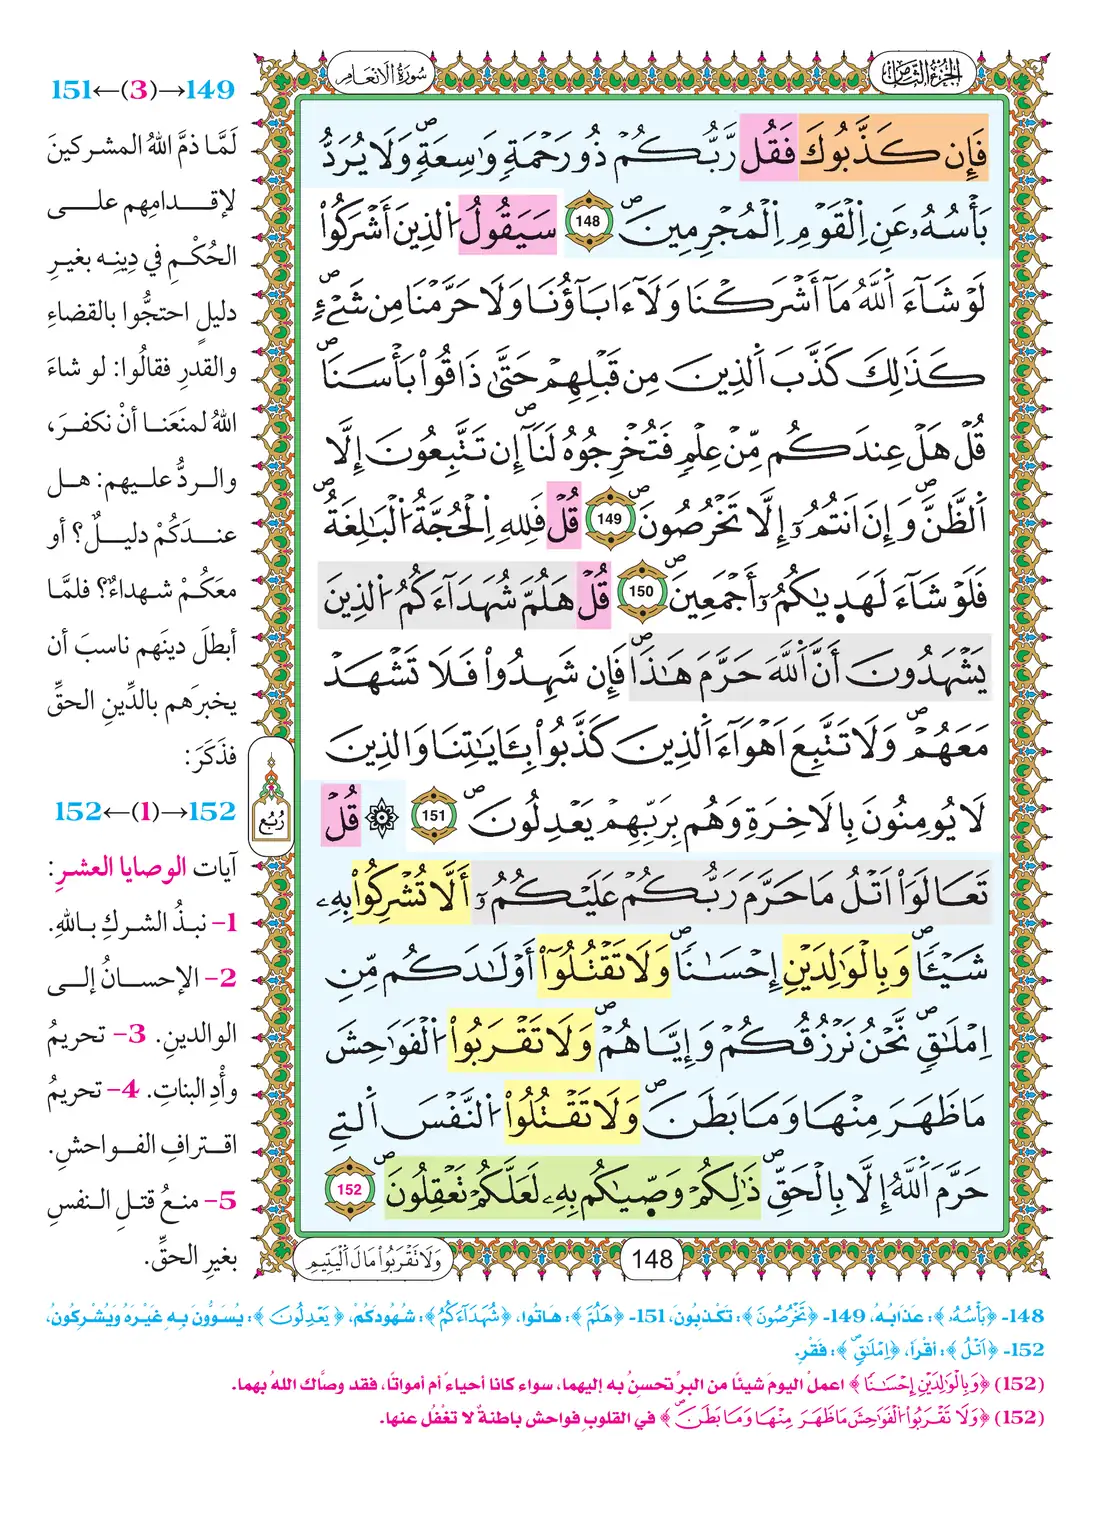 الجزء الثامن
سورة الأنعام
فَإِن كَذَّبُوكَ فَقُل رَّبُّكُمْ ذُو رَحْمَةٍ وَٰسِعَةٍۖ وَلَا يُرَدُّ
بَأْسُهُۥ عَنِ اِ۬لْقَوْمِ اِ۬لْمُجْرِمِينَۖ 148 سَيَقُولُ اُ۬لذِينَ أَشْرَكُواْ
لَوْ شَآءَ اَ۬للَّهُ مَآ أَشْرَكْنَا وَلَآ ءَابَآؤُنَا وَلَا حَرَّمْنَا مِن شَےْءٖۖ
كَذَٰلِكَ كَذَّبَ اَ۬لذِينَ مِن قَبْلِهِمْ حَتَّىٰ ذَاقُواْ بَأْسَنَاۖ
قُلْ هَلْ عِندَكُم مِّنْ عِلْمٖ فَتُخْرِجُوهُ لَنَآۖ إِن تَتَّبِعُونَ إِلَّا
اَ۬لظَّنَّۖ وَإِنَ اَنتُمُۥٓ إِلَّا تَخْرُصُونَۖ 149 قُلْ فَلِلهِ اِ۬لْحُجَّةُ اُ۬لْبَٰلِغَةُۖ
فَلَوْ شَآءَ لَهَد۪يٰكُمُۥٓ أَجْمَعِينَۖ 150 قُلْ هَلُمَّ شُهَدَآءَكُمُ اُ۬لذِينَ
يَشْهَدُونَ أَنَّ اَ۬للَّهَ حَرَّمَ هَٰذَاۖ فَإِن شَهِدُواْ فَلَا تَشْهَدْ
مَعَهُمْۖ وَلَا تَتَّبِعَ اَهْوَآءَ اَ۬لذِينَ كَذَّبُواْ بِـَٔايَٰتِنَا وَالذِينَ
لَا يُومِنُونَ بِالَاخِرَةِ وَهُم بِرَبِّهِمْ يَعْدِلُونَۖ 151 ۞ قُل
تَعَالَوَاْ اَتْلُ مَا حَرَّمَ رَبُّكُمْ عَلَيْكُمُۥٓ أَلَّا تُشْرِكُواْ بِهِۦ
شَيْـٔاٗۖ وَبِالْوَٰلِدَيْنِ إِحْسَٰناٗۖ وَلَا تَقْتُلُوٓاْ أَوْلَٰدَكُم مِّنِ
اِمْلَٰقٖۖ نَّحْنُ نَرْزُقُكُمْ وَإِيَّاهُمْۖ وَلَا تَقْرَبُواْ اُ۬لْفَوَٰحِشَ
مَا ظَهَرَ مِنْهَا وَمَا بَطَنَۖ وَلَا تَقْتُلُواْ اُ۬لنَّفْسَ اَ۬لتِے
حَرَّمَ اَ۬للَّهُ إِلَّا بِالْحَقِّۖ ذَٰلِكُمْ وَصّ۪يٰكُم بِهِۦ لَعَلَّكُمْ تَعْقِلُونَۖ 152
148
وَلَا تَقْرَبُواْ مَالَ اَ۬لْيَتِيمِ
رُبُع
149→(3)←151
لَمَّا ذمَّ اللهُ المشركينَ
لإقدامِهم على
الحُكْمِ في دِينِه بغيرِ
دليلٍ احتجُّوا بالقضاءِ
والقدرِ فقالُوا: لو شاءَ
اللهُ لمنَعَنا أنْ نكفرَ،
والردُّ عليهم: هل
عندَكُمْ دليلٌ؟ أو
معَكُمْ شهداءُ؟ فلمَّا
أبطلَ دينَهم ناسبَ أن
يخبرَهم بالدِّينِ الحقِّ
فذَكَرَ:
152→(1)←152
آيات الوصايا العشرِ:
1- نبذُ الشركِ باللهِ.
2- الإحسانُ إلى
الوالدينِ. 3- تحريمُ
وأْدِ البناتِ. 4- تحريمُ
اقترافِ الفواحشِ.
5- منعُ قتلِ النفسِ
بغيرِ الحقِّ.
148- ﴿بَأْسُهُۥ﴾: عَذَابُهُ، 149- ﴿تَخْرُصُونَ﴾: تَكْذِبُونَ، 151- ﴿هَلُمَّ﴾: هَاتُوا، ﴿شُهَدَآءَكُمُ﴾: شُهُودَكُمْ، ﴿يَعْدِلُونَ﴾: يُسَوُّونَ بِهِ غَيْرَهُ وَيُشْرِكُونَ،
152- ﴿اَتْلُ﴾: أقْرَأ، ﴿اِمْلَٰقٖ﴾: فَقْرٍ.
(152) ﴿وَبِالْوَٰلِدَيْنِ إِحْسَٰناٗ﴾ اعملْ اليومَ شيئًا من البرِّ تحسنُ به إليهما، سواء كانا أحياء أم أمواتًا، فقد وصَّاك اللهُ بهما.
(152) ﴿وَلَا تَقْرَبُواْ اُ۬لْفَوَٰحِشَ مَا ظَهَرَ مِنْهَا وَمَا بَطَنَۖ﴾ في القلوبِ فواحش باطنةٌ لا تغْفُل عنها.